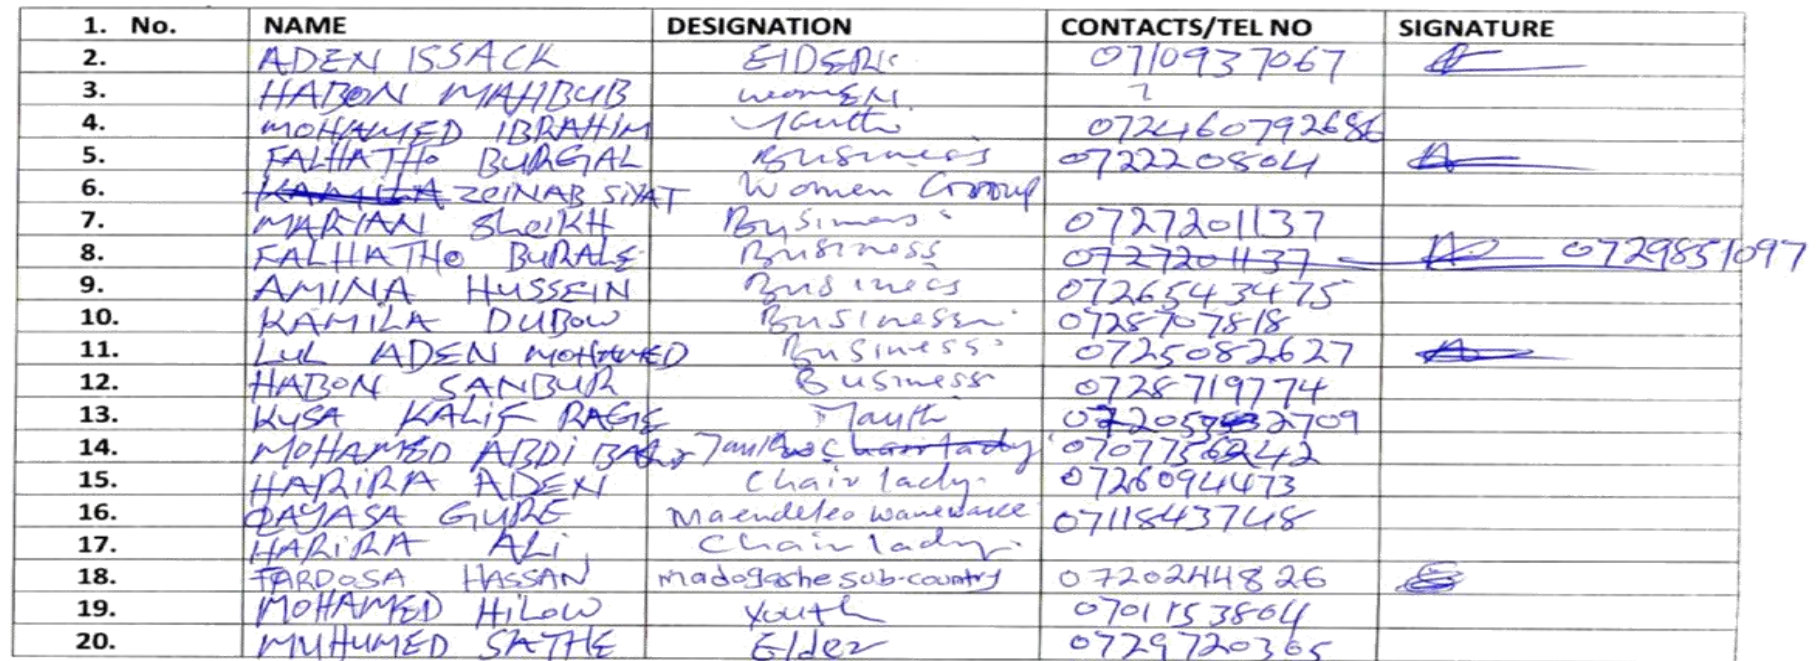 1. No. NAME DESIGNATION CONTACTS/TEL NO SIGNATURE
2. ADEN ISSACK ELDER 0710937067
3. HABON MAHBUB WOMEN ?
4. MOHAMED IBRAHIM Youth 072460792686
5. FALHATHO BURGAL Business 0722220804
6. KAMILA ZEINAB SIYAT Women Group
7. MARIAN SheiKH Business 0727201137
8. FALHATHO BURALE Business 0727201137 0729851097
9. AMINA HUSSEIN Business 0726543475
10. KAMILA DUBOW Business 0728707818
11. LUL ADEN MOHAMED Business 0725082627
12. HABON SANBUR Business 0728719774
13. KUSA KALIF RAGE Youth
14. MOHAMED ABDI Chairlady
15. HARIRA ADEN Chair lady 0726094473
16. QAYASA GURE Maendeleo 0711843748
17. HARIRA ALI Chair lady
18. FARDOSA HASSAN madogashe sub-country 0720244826
19. MOHAMED HILOW youth 0701153804
20. MUHUMED SATHE Elder 0729720365